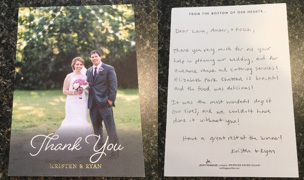 Thank You
KRISTEN & RYAN
FROM THE BOTTOM OF OUR HEARTS...
Dear
Thank you very much for all your
help in planning our wedding, and for
awesome and catering services!
Elizabeth Park
and the food was delicious!
It was the most wonderful day of
our lives, and we couldn't have
done it without you!
Have a great rest of the summer!
Kristen & Ryan